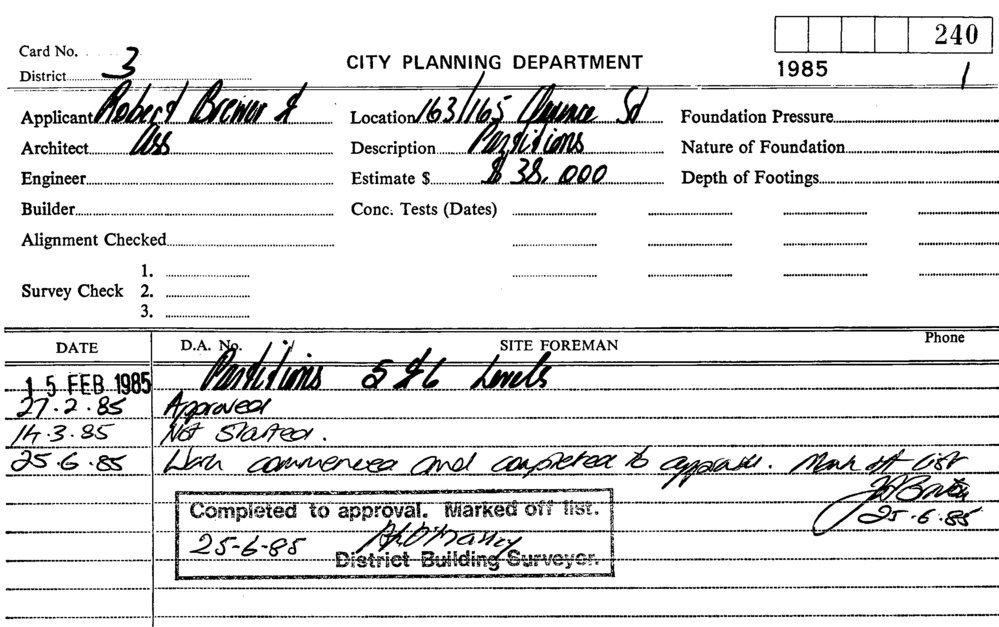 240
Card No.
1985
1
District 3
CITY PLANNING DEPARTMENT
Applicant Robert Brewer &
Location 163/165 Clarence St
Foundation Pressure
Architect Ass
Description Partitions
Nature of Foundation
Engineer
Estimate $ $ 38,000
Depth of Footings
Builder
Conc. Tests (Dates)
Alignment Checked
1.
Survey Check 2.
3.
DATE
D.A. No.
SITE FOREMAN
Phone
15 FEB 1985 Partitions 5 & 6 Levels
27.2.85 Approved
14.3.85 Not Started.
25.6.85 Work commenced and completed to approval. Mark off list
25.6.85
Completed to approval. Marked off list.
25-6-85
District Building Surveyor.